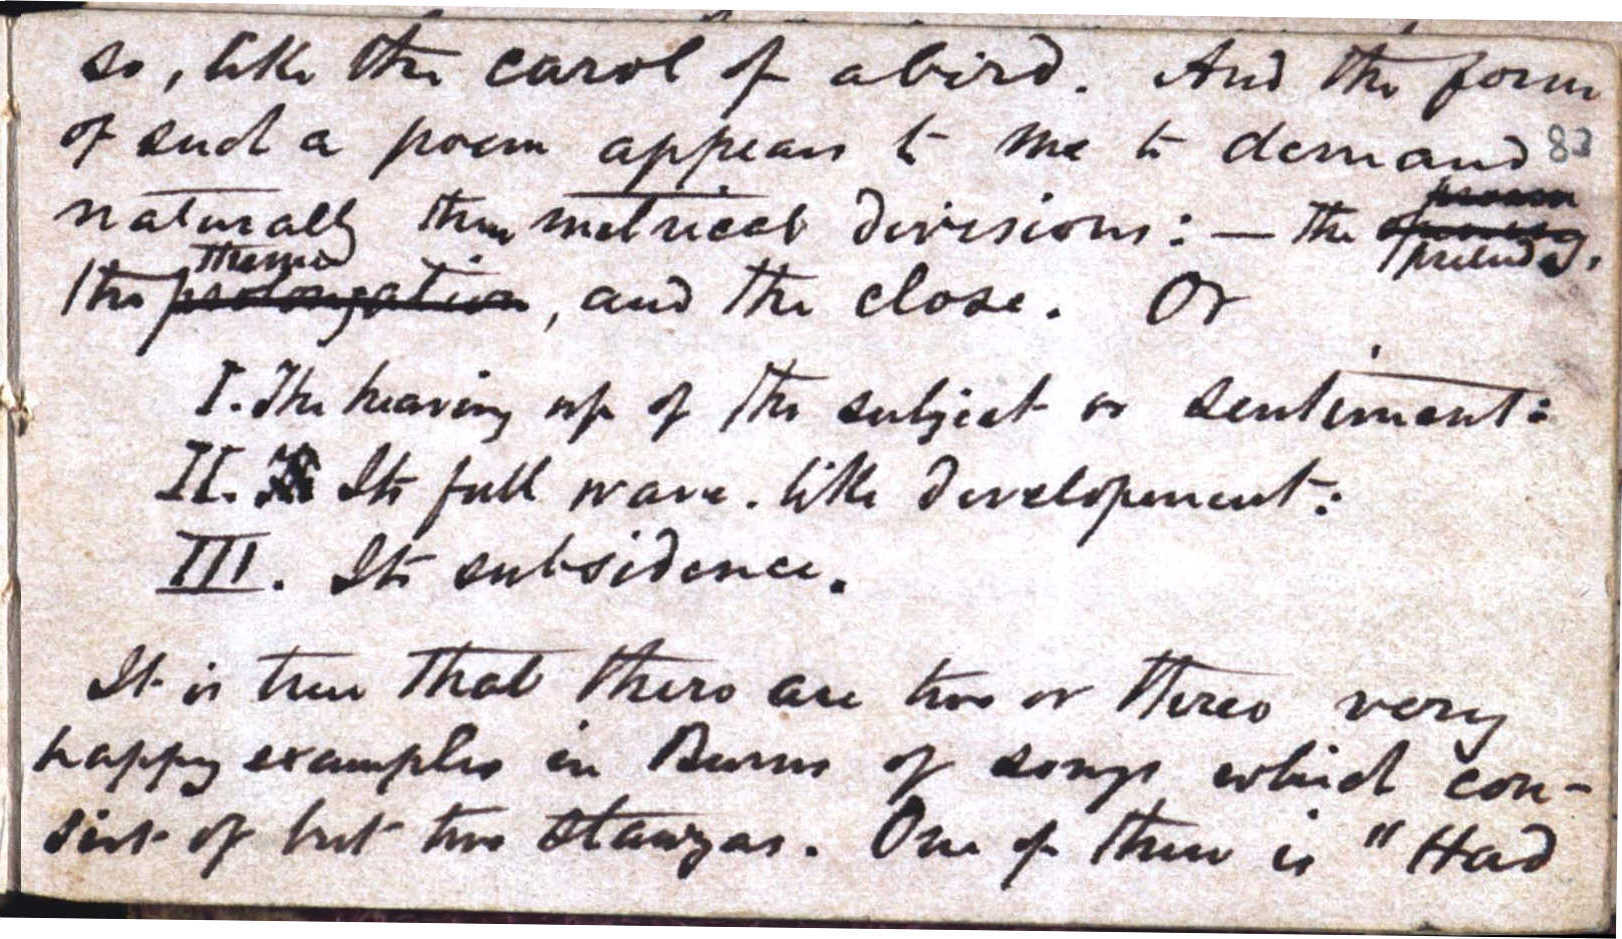 so, like the carol of a bird. And the form
of such a poem appears to me to demand 83
naturally three metrical divisions: — the proem opening prelude,
the prolongation theme, and the close. Or
I. The heaving up of the subject or sentiment:
II. Its full wave-like development:
III. Its subsidence.
It is true that there are two or three very
happy examples in Burns of songs which con-
sist of but two stanzas. One of them is "Had